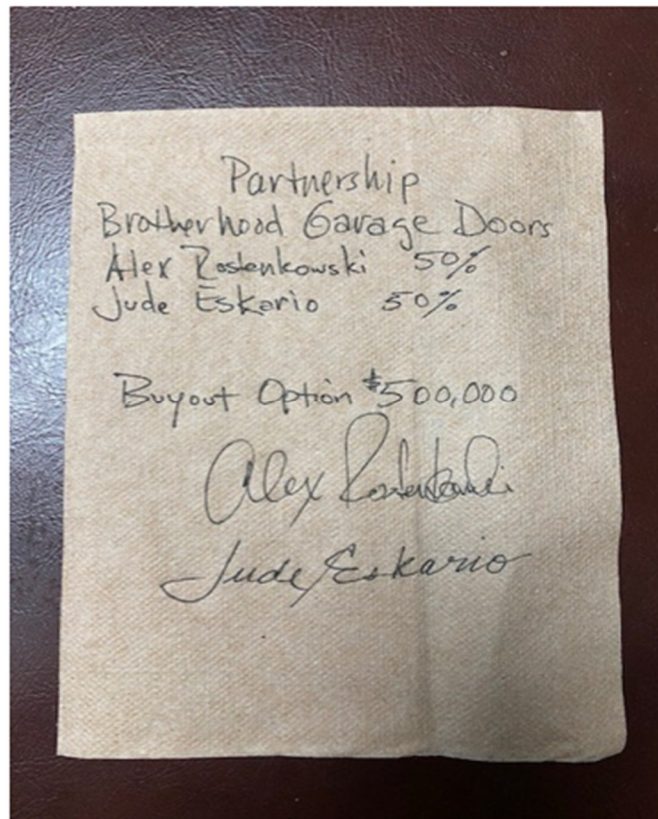 Partnership
Brotherhood Garage Doors
Alex Rostenkowski 50%
Jude Eskario 50%
Buyout Option $500,000
Alex Rostenkowski
Jude Eskario